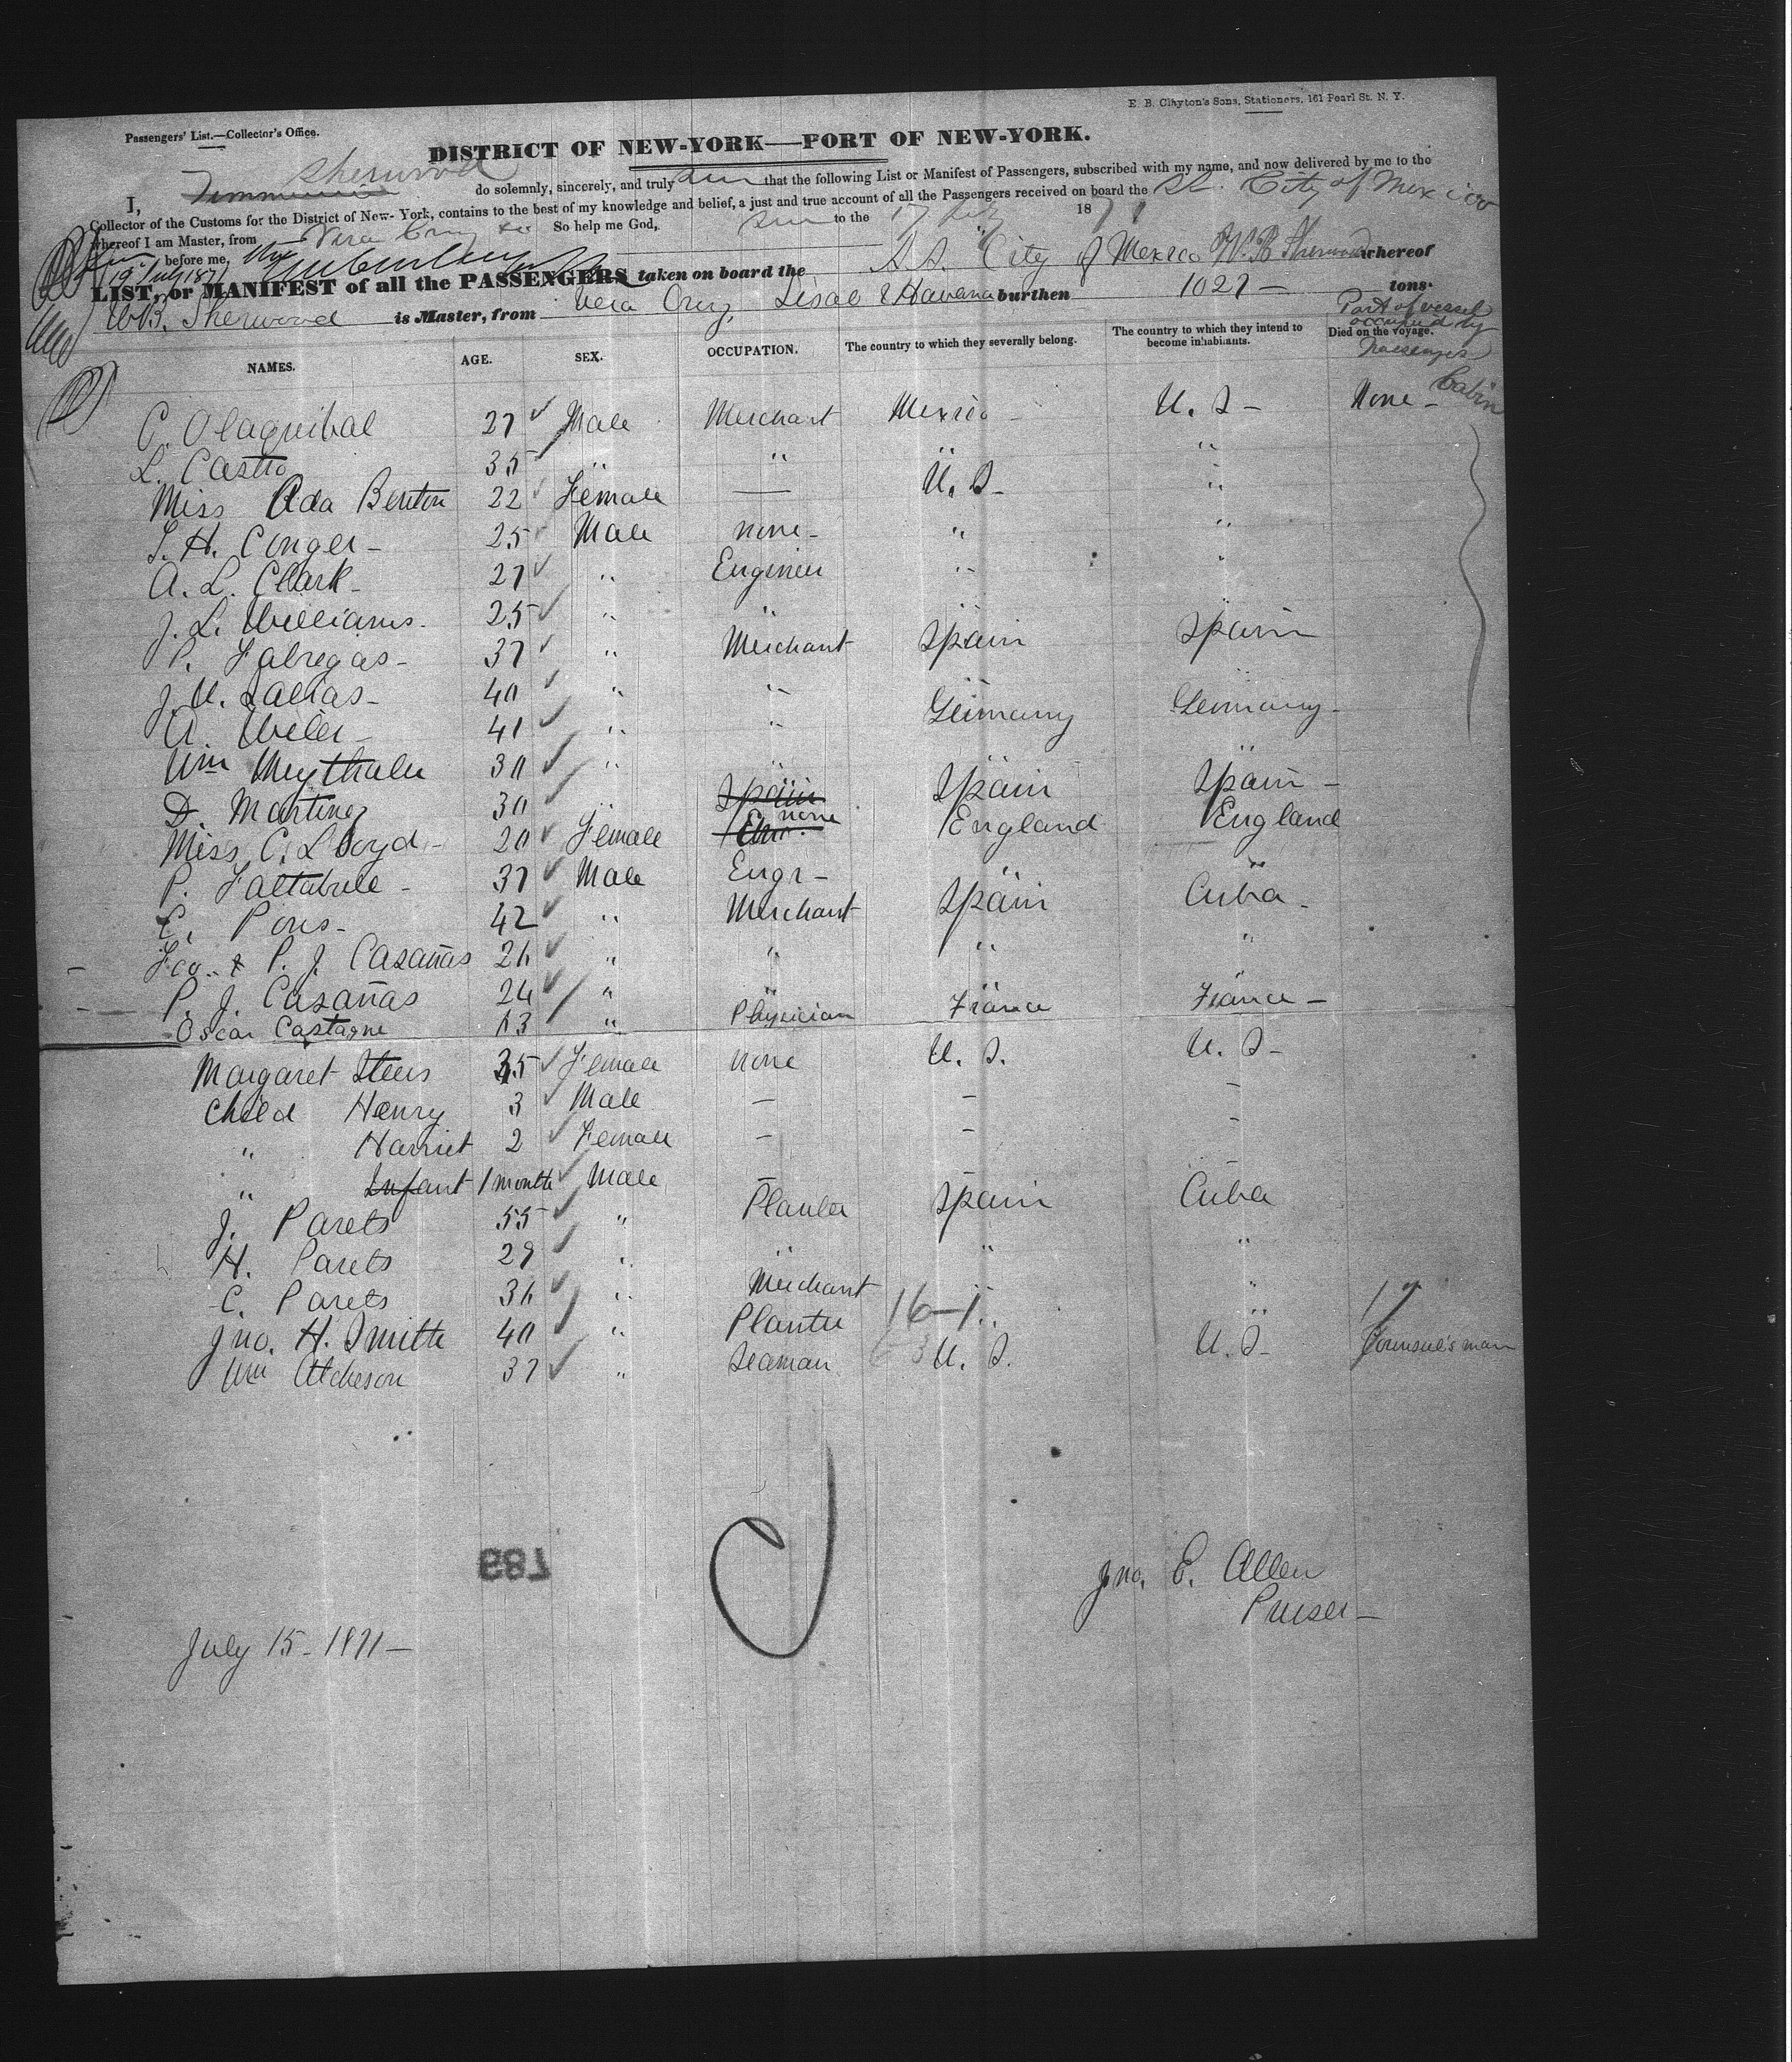 E. B. Clayton's Sons, Stationers, 161 Pearl St. N. Y.
Passengers' List.—Collector's Office.
DISTRICT OF NEW-YORK—PORT OF NEW-YORK.
Sherwood
I, do solemnly, sincerely, and truly that the following List or Manifest of Passengers, subscribed with my name, and now delivered by me to the
Collector of the Customs for the District of New-York, contains to the best of my knowledge and belief, a just and true account of all the Passengers received on board the St. City of Mexico
whereof I am Master, from Vera Cruz So help me God, to the 17 July 1871
before me,
19 July 1871
LIST, or MANIFEST of all the PASSENGERS taken on board the S.S. City of Mexico W. B. Sherwood whereof
W.B. Sherwood is Master, from Vera Cruz, Sisal & Havana burthen 1027 — tons.
NAMES. AGE. SEX. OCCUPATION. The country to which they severally belong. The country to which they intend to become inhabitants. Died on the voyage. Part of vessel occupied by Passengers
C. Olaguibal 27 Male Merchant Mexico - U. S - None - Cabin
L. Castro 35 " " " "
Miss Ada Benton 22 Female — U. S - "
S. H. Conger - 25 Male none - " "
A. L. Clark - 27 " Engineer " "
J. L. Williams - 25 " " " "
P. Fabregas - 37 " Merchant Spain Spain
J. U. Salias - 40 " " " "
A. Weler - 41 " " Germany Germany -
Wm Meythaler 30 " " " "
D. Martinez 30 " Spain Spain Spain -
Miss C. Lloyd - 20 Female none England England
P. Faltabule - 37 Male Engr - " "
E. Pons - 42 " Merchant Spain Cuba -
Fco. & P. J. Casañas 26 " " " "
P. J. Casañas 24 " " " "
Oscar Castagne 63 " Physician France France -
Margaret Steers 35 Female none U. S. U. S -
Child Henry 3 Male - - -
" Harriet 2 Female - - -
" Infant 1 month Male - - -
J. Parets 55 " Planter Spain Cuba
H. Parets 29 " " " "
C. Parets 36 " Merchant " "
Jno. H. Smith 40 " Planter 16-1 " " 17
Wm Atcheson 37 " Seaman 63 U. S. U. S - Counsul's man
789
Jno. E. Allen
Purser -
July 15 - 1871 -